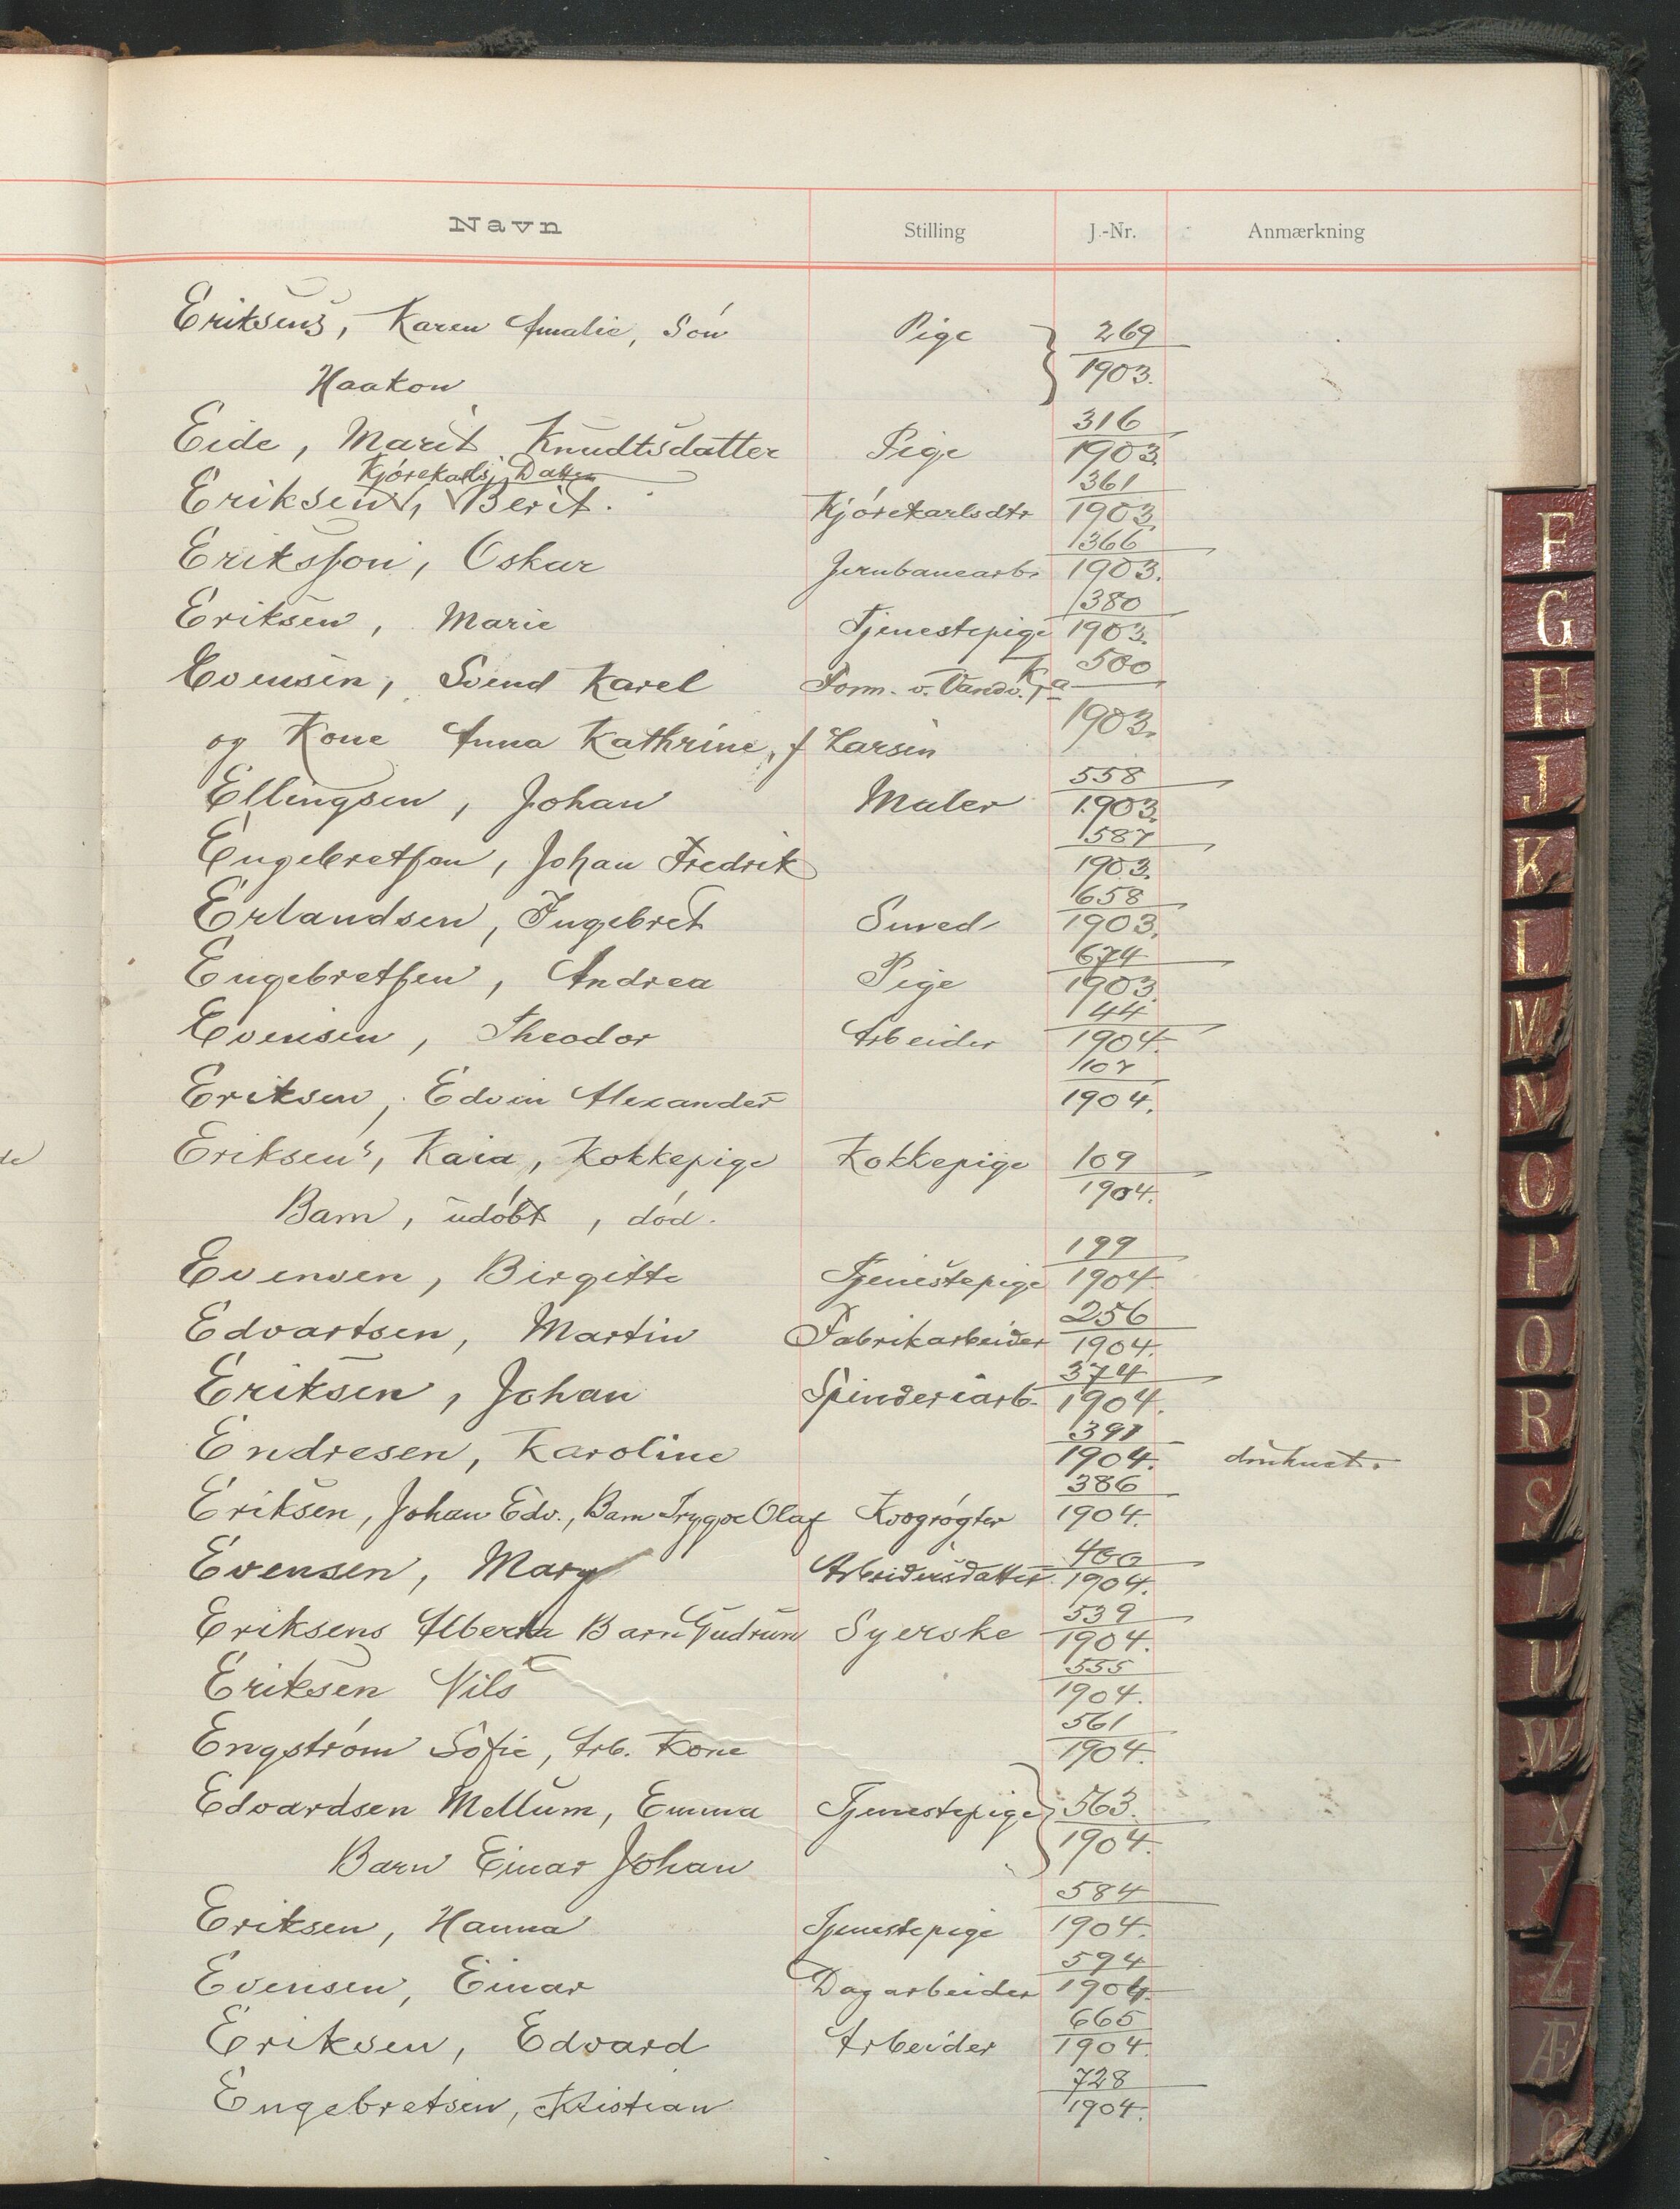 Navn Stilling J.-Nr. Anmærkning
Eriksens, Karen Amalie, Søn Pige 269
Haakon 1903.
316
Eide, Marit Knudtsdatter Pige 1903.
Kjørekarls Datter 361
Eriksen, Berit. Kjørekarlsdtr 1903.
366
Eriksson, Oskar Jernbanearb. 1903.
380
Eriksen, Marie Tjenestepige 1903.
500
Evensen, Svend Karel Form. v. Vandv.
1903.
og Kone Anna Kathrine, f Larsen
558
Ellingsen, Johan Maler 1903.
587
Engebretsen, Johan Fredrik 1903.
658
Erlandsen, Ingebret Smed 1903.
674
Engebretsen, Andrea Pige 1903.
44
Evensen, Theodor Arbeider 1904.
107
Eriksen, Edvin Alexander 1904.
Eriksen's, Kaia, Kokkepige Kokkepige 109
Barn, udøbt, død. 1904.
199
Evensen, Birgitte Tjenestepige 1904.
256
Edvartsen, Martin Fabrikarbeider 1904.
374
Eriksen, Johan Spinderiarb. 1904.
391
Endresen, Karoline 1904. druknet.
386
Eriksen, Johan Edv., Barn Trygve Olaf Kvogrøgter 1904.
400
Evensen, Mary Arbeidersdatter 1904.
539
Eriksens Alberta Barn Gudrun Syerske 1904.
555
Eriksen Nils 1904.
561
Engstrøm Sofie, Arb. Kone 1904.
Edvardsen Mellum, Emma Tjenestepige 563.
1904.
Barn Einar Johan
584
Eriksen, Hanna Tjenestepige 1904.
594
Evensen, Einar Dagarbeider 1904.
665
Eriksen, Edvard Arbeider 1904.
728
Engebretsen, Kristian 1904.
F
G
H
J
K
L
M
N
O
P
Q
R
S
T
U
W
X
Y
Z
Æ
Ø